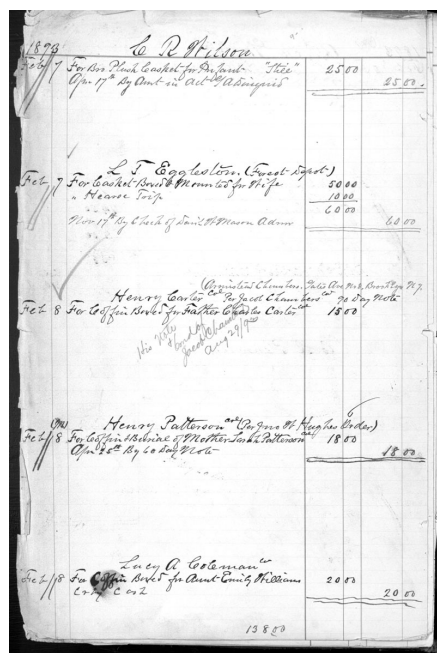 1893 C R Wilson
Feb 7 For Bro Plush Casket for Infant "Still" 25 00
Apr 17th By Amt in Act of A D 25 00
L T Eggleston (Forest Depot)
Feb 7 For Casket Boxed & Mounted for Wife 50 00
" Hearse Trip 10 00
60 00
Nov 17th By Check of Danl W Mason Admr 60 00
(Armistead Chambers, Gates Ave No 8, Brooklyn N.Y.
Henry Carter Col Per Jacob Chambers Col 90 Day Note
Feb 8 For Coffin Boxed for Father Charles Carter Col 15 00
His Note
Jacob Chambers
Aug 29/9
Henry Patterson Col (Per Jno W Hughes Order)
Feb 8 For Coffin & Burial of Mother Sarah Patterson 18 00
Apr 20th By 60 Day Note 18 00
Lucy A Coleman Col
Feb 8 For Coffin Boxed for Aunt Emily Williams 20 00
20 00
138 00